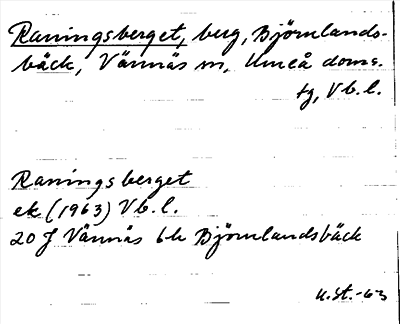 Raningsberget, berg, Björnlands-
bäck, Vännäs sn, Umeå doms.
tg, Vb. l.
Raningsberget
ek (1963) Vb. l.
20 J Vännäs 6h Björnlandsbäck
U.St.-63